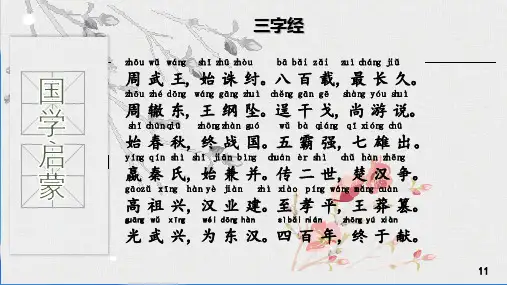 三字经
国学启蒙
zhōu wǔ wáng shǐ zhū zhòu bā bǎi zǎi zuì cháng jiǔ
周武王，始诛纣。八百载，最长久。
zhōu zhé dōng wáng gāng zhuì chěng gān gē shàng yóu shuì
周辙东，王纲坠。逞干戈，尚游说。
shǐ chūn qiū zhōng zhàn guó wǔ bà qiáng qī xióng chū
始春秋，终战国。五霸强，七雄出。
yíng qín shì shǐ jiān bìng chuán èr shì chǔ hàn zhēng
嬴秦氏，始兼并。传二世，楚汉争。
gāo zǔ xīng hàn yè jiàn zhì xiào píng wáng mǎng cuàn
高祖兴，汉业建。至孝平，王莽篡。
guāng wǔ xīng wéi dōng hàn sì bǎi nián zhōng yú xiàn
光武兴，为东汉。四百年，终于献。
11